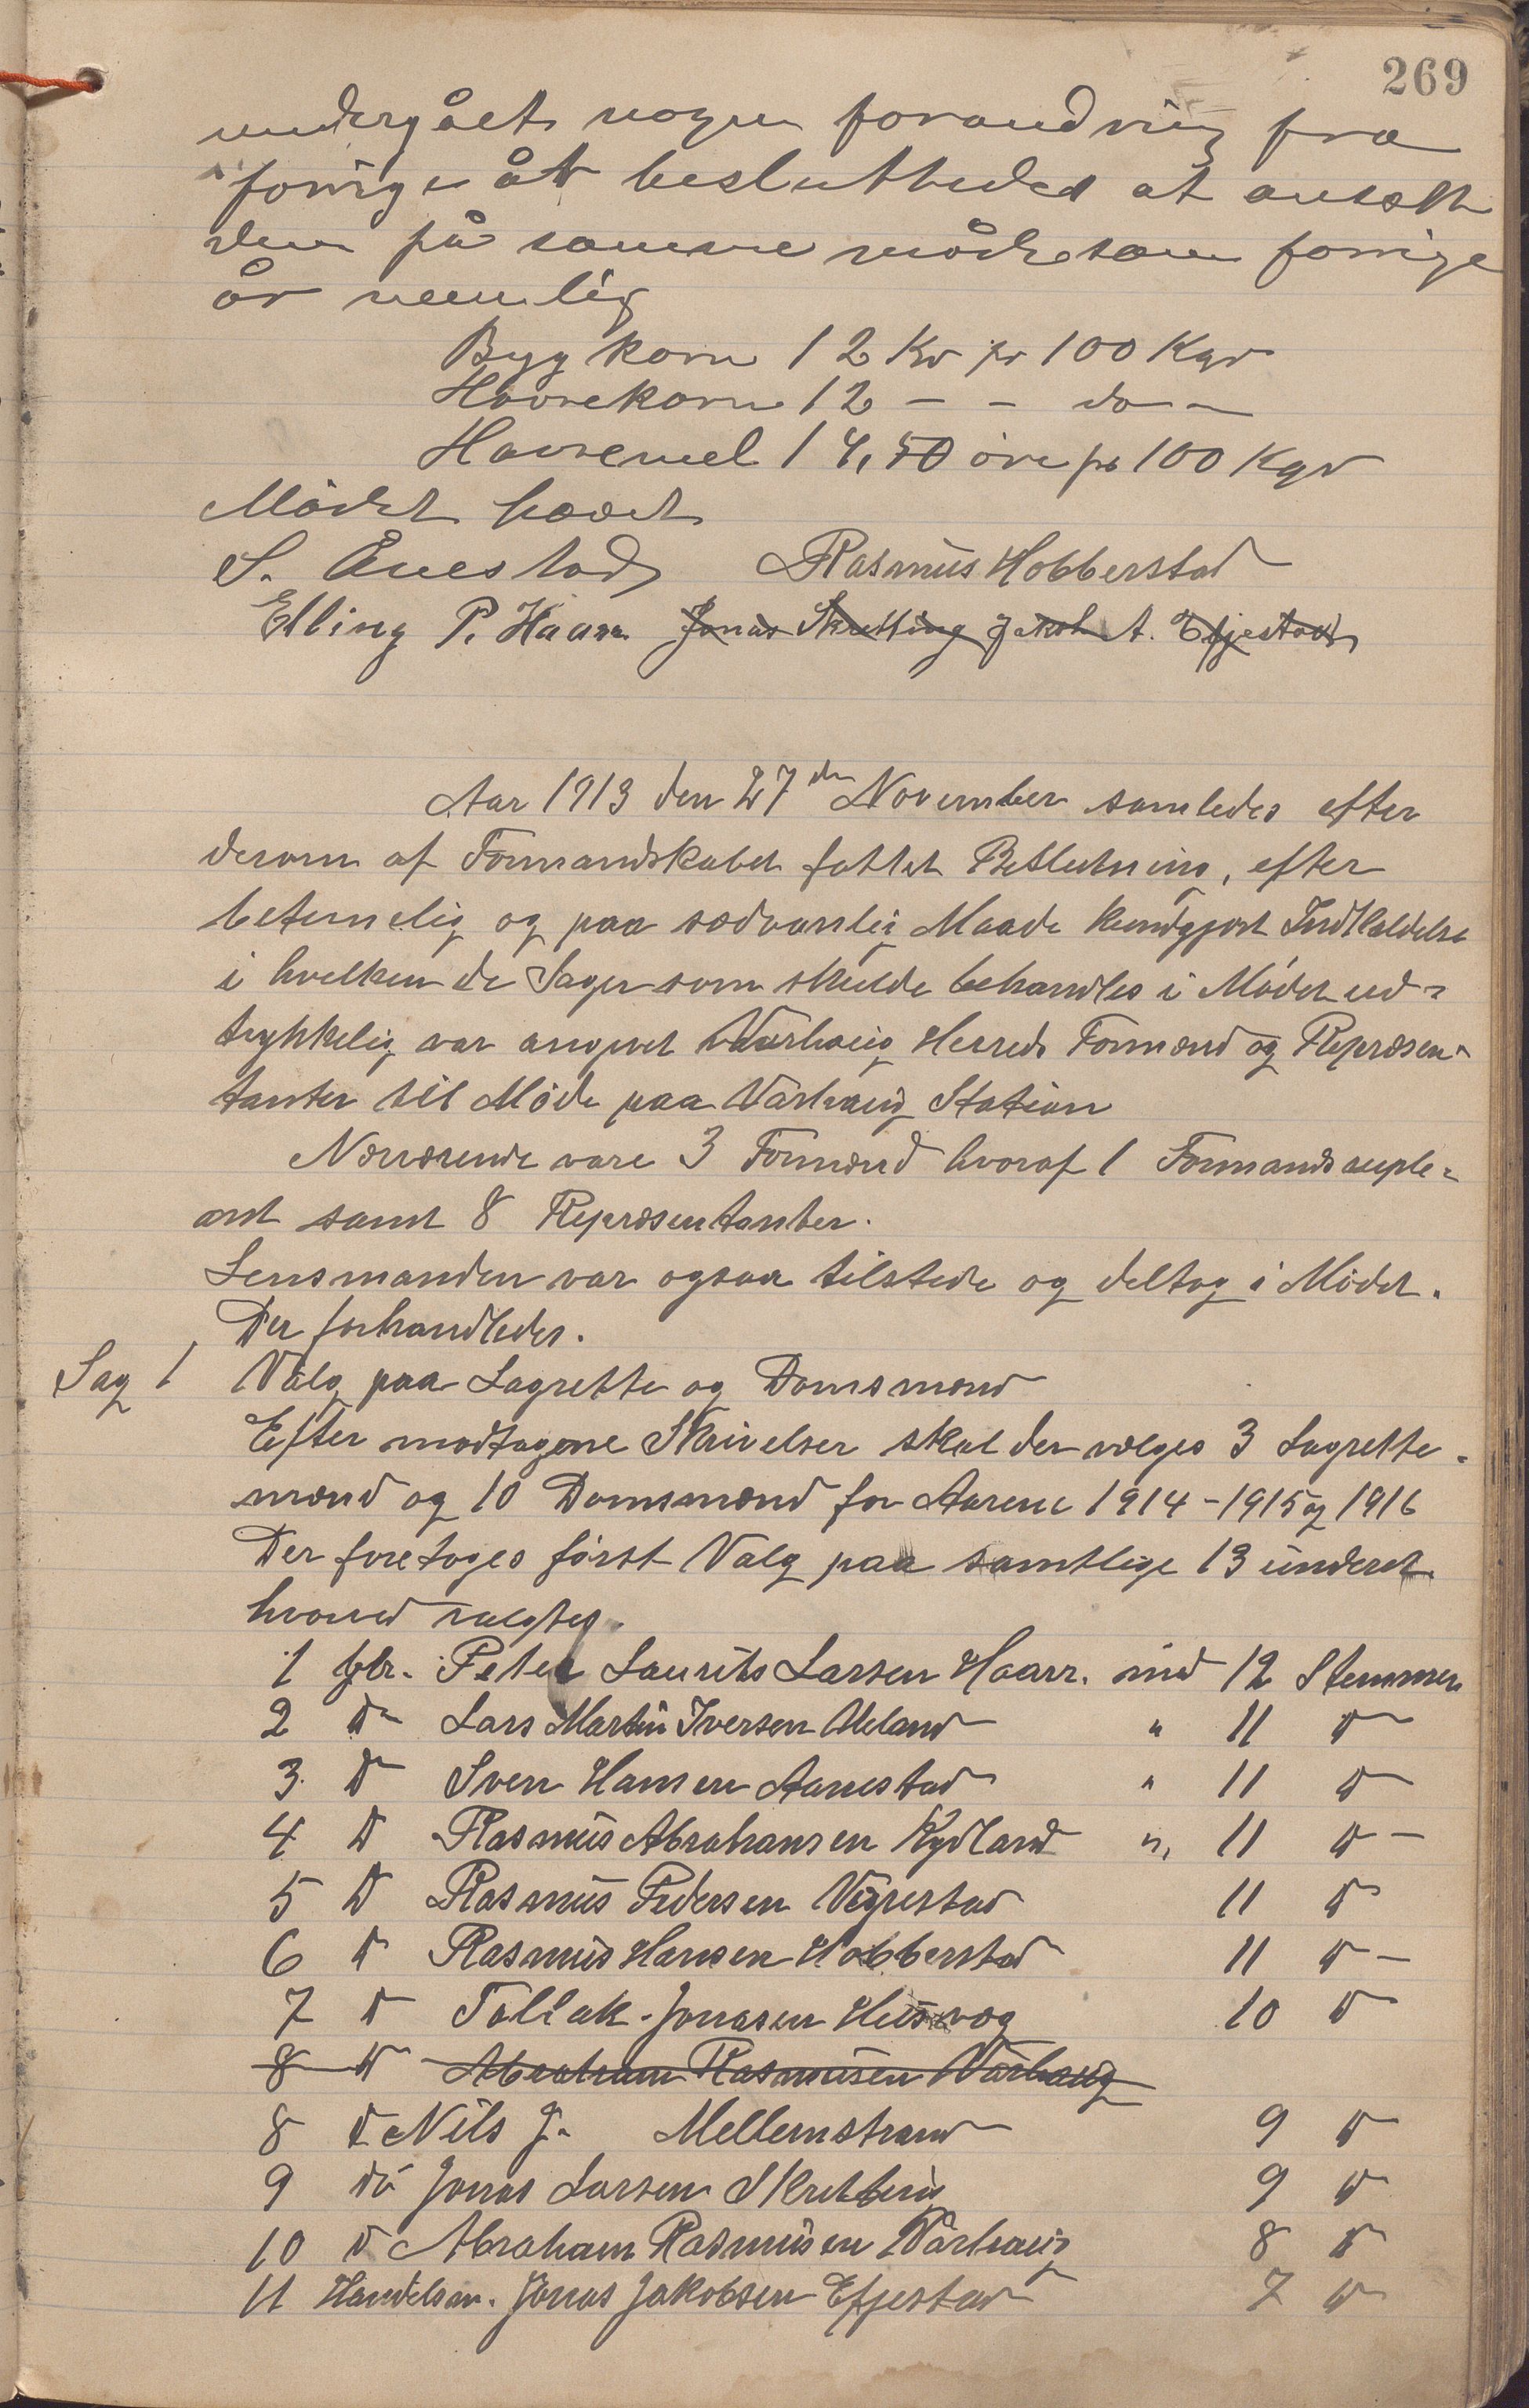 269
undergået nogen forandring fra
forrige år besluttedes at ansætte
den på samme måde som forrige
år nemlig
Bygkorn 12 Kr pr 100 Kgr
Havrekorn 12 - - do -
Havremel 14,50 öre pr 100 Kgr
Mödet hævet
S. Ånestad Rasmus Hobberstad
Elling P. Haar Jonas Skretting Jakob A. Efjestad
Aar 1913 den 27de November samledes efter
derom af Formandskabet fattet Beslutning, efter
betimelig og paa sædvanlig Maade kundgjort Indkaldelse
i hvilken de Sager som skulde behandles i Mödet ud-
trykkelig var angivet Varhaug Herreds Formænd og Repræsen-
tanter til Möde paa Varhaug Station
Nærværende vare 3 Formænd hvoraf 1 Formandssuple-
ant samt 8 Repræsentanter.
Lensmanden var ogsaa tilstede og deltog i Mödet.
Der forhandledes.
Sag 1 Valg paa Lagrette og Domsmænd
Efter modtagne Skrivelser skal der vælges 3 Lagrette-
mænd og 10 Domsmænd for Aarene 1914-1915 og 1916
Der foretoges först Valg paa samtlige 13 underet
hvorved valgtes.
1 gbr. Peter Laurits Larsen Haarr. med 12 Stemmer
2 D Lars Martin Iversen Ueland " 11 D
3 D Sven Hansen Aanestad " 11 D
4 D Rasmus Abrahamsen Rydland " 11 D -
5 D Rasmus Pedersen Vigrestad 11 D
6 D Rasmus Hansen Hobberstad 11 D -
7 D Tollak Jonasen Husvæg 10 D
8 D Abraham Rasmusen Varhaug
8 D Nils J. Mellemstrand 9 D
9 Do Jonas Larsen Skretting 9 D
10 D Abraham Rasmusen Varhaug 8 D
11 Handelsm. Jonas Jakobsen Efjestad 7 D